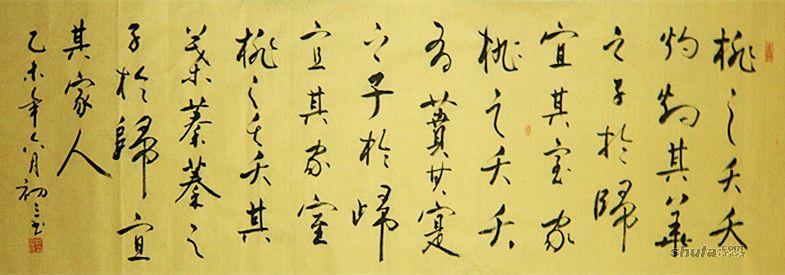 桃之夭夭
灼灼其華
之子於歸
宜其室家
桃之夭夭
有蕡其寔
之子於歸
宜其家室
桃之夭夭其
葉蓁蓁之
子於歸宜
其家人
乙未年六月初三书
shufa.com